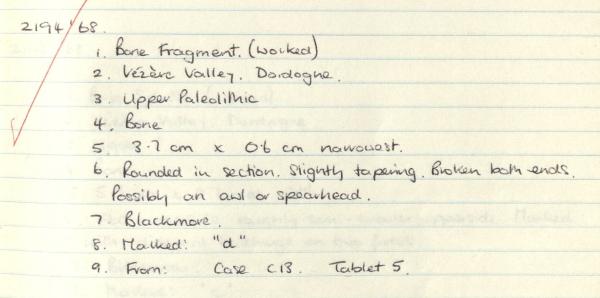 2194/68.
1. Bone Fragment. (Worked)
2. Vézère Valley. Dordogne.
3. Upper Paleolithic
4. Bone
5. 3.7 cm x 0.6 cm narrowest.
6. Rounded in section. Slightly tapering. Broken both ends.
Possibly an awl or spearhead.
7. Blackmore.
8. Marked: "d"
9. From: Case C13. Tablet 5.